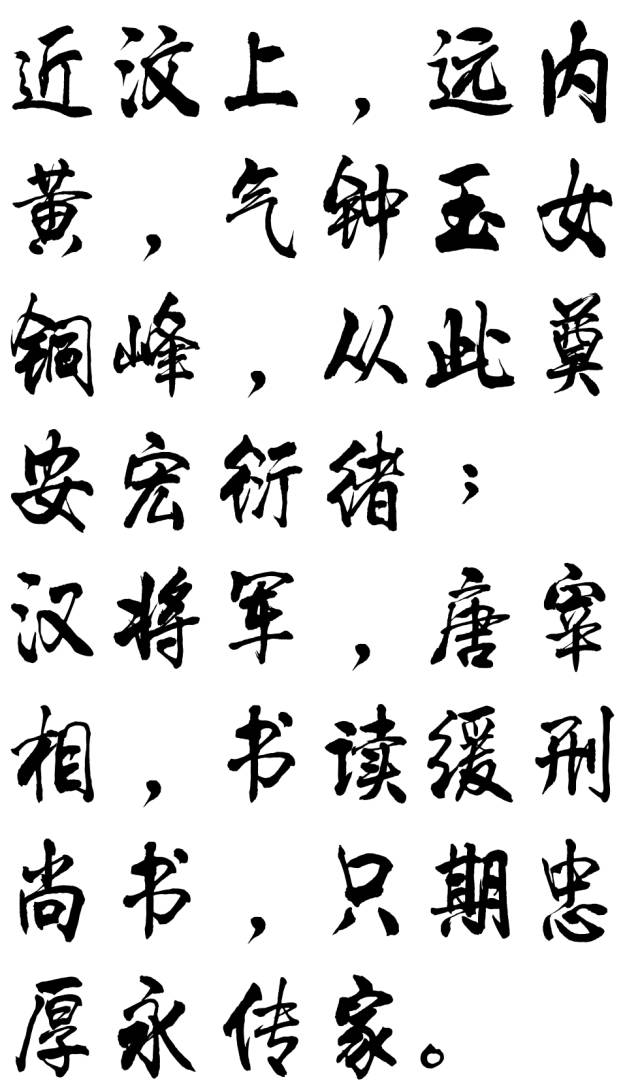 近汶上，远内
黄，气钟玉女
铜峰，从此奠
安宏衍绪；
汉将军，唐宰
相，书读缓刑
尚书，只期忠
厚永传家。